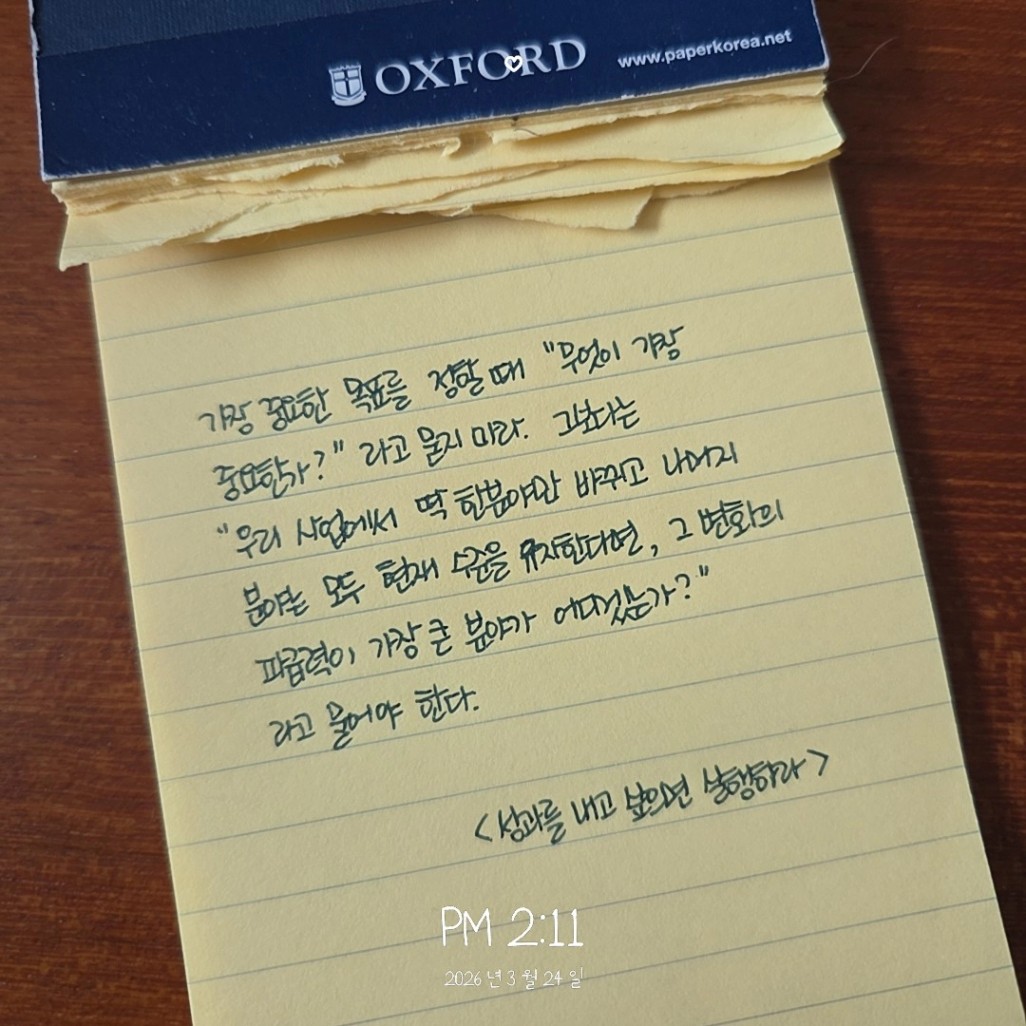 OXFORD www.paperkorea.net
가장 중요한 목표를 정할 때 "무엇이 가장
중요한가?" 라고 묻지 마라. 그보다는
"우리 사업에서 딱 한분야만 바꾸고 나머지
분야는 모두 현재 수준을 유지한다면, 그 변화의
파급력이 가장 큰 분야가 어디겠는가?"
라고 물어야 한다.
<성과를 내고 싶으면 실행하라>
PM 2:11
2026년 3월 24일